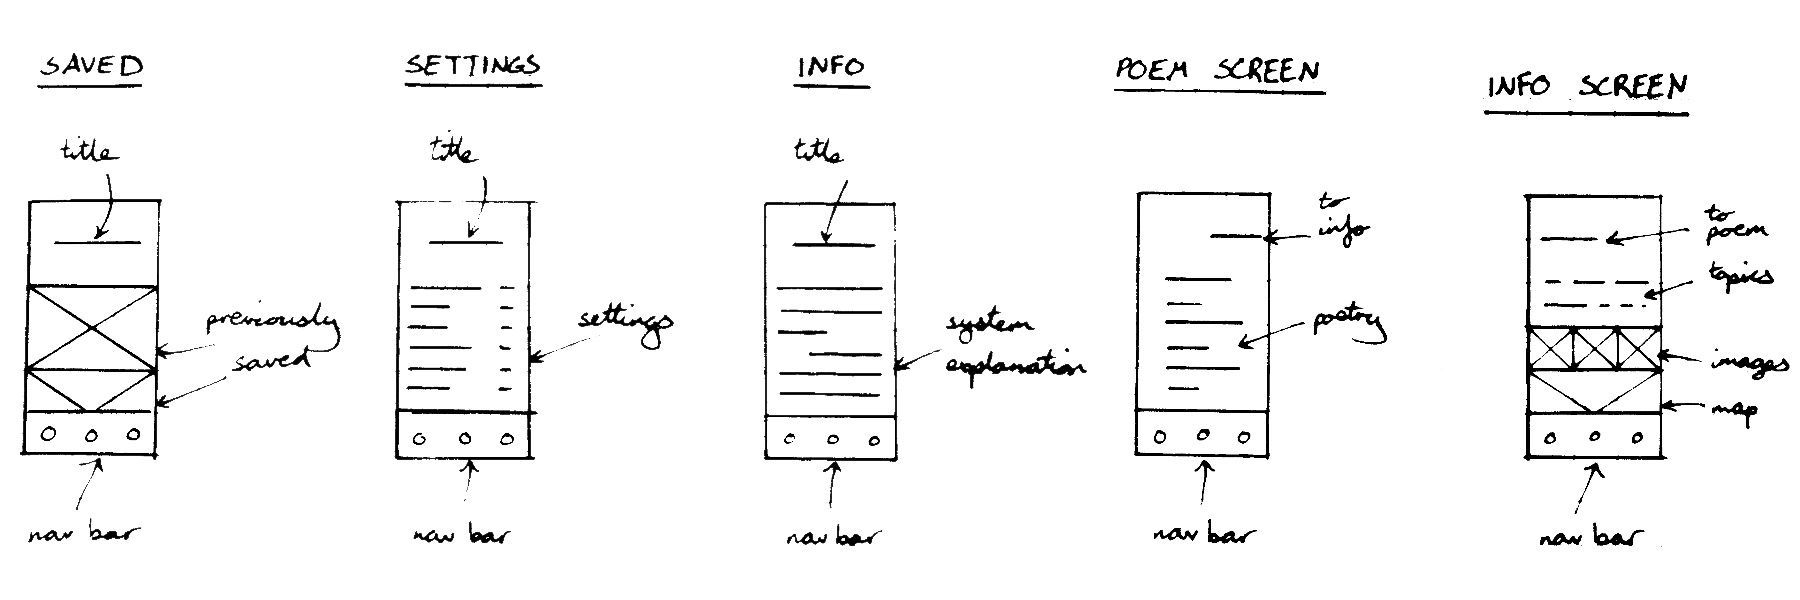 SAVED
title
previously
saved
nav bar
SETTINGS
title
settings
nav bar
INFO
title
system
explanation
nav bar
POEM SCREEN
to
info
poetry
nav bar
INFO SCREEN
to
poem
topics
images
map
nav bar